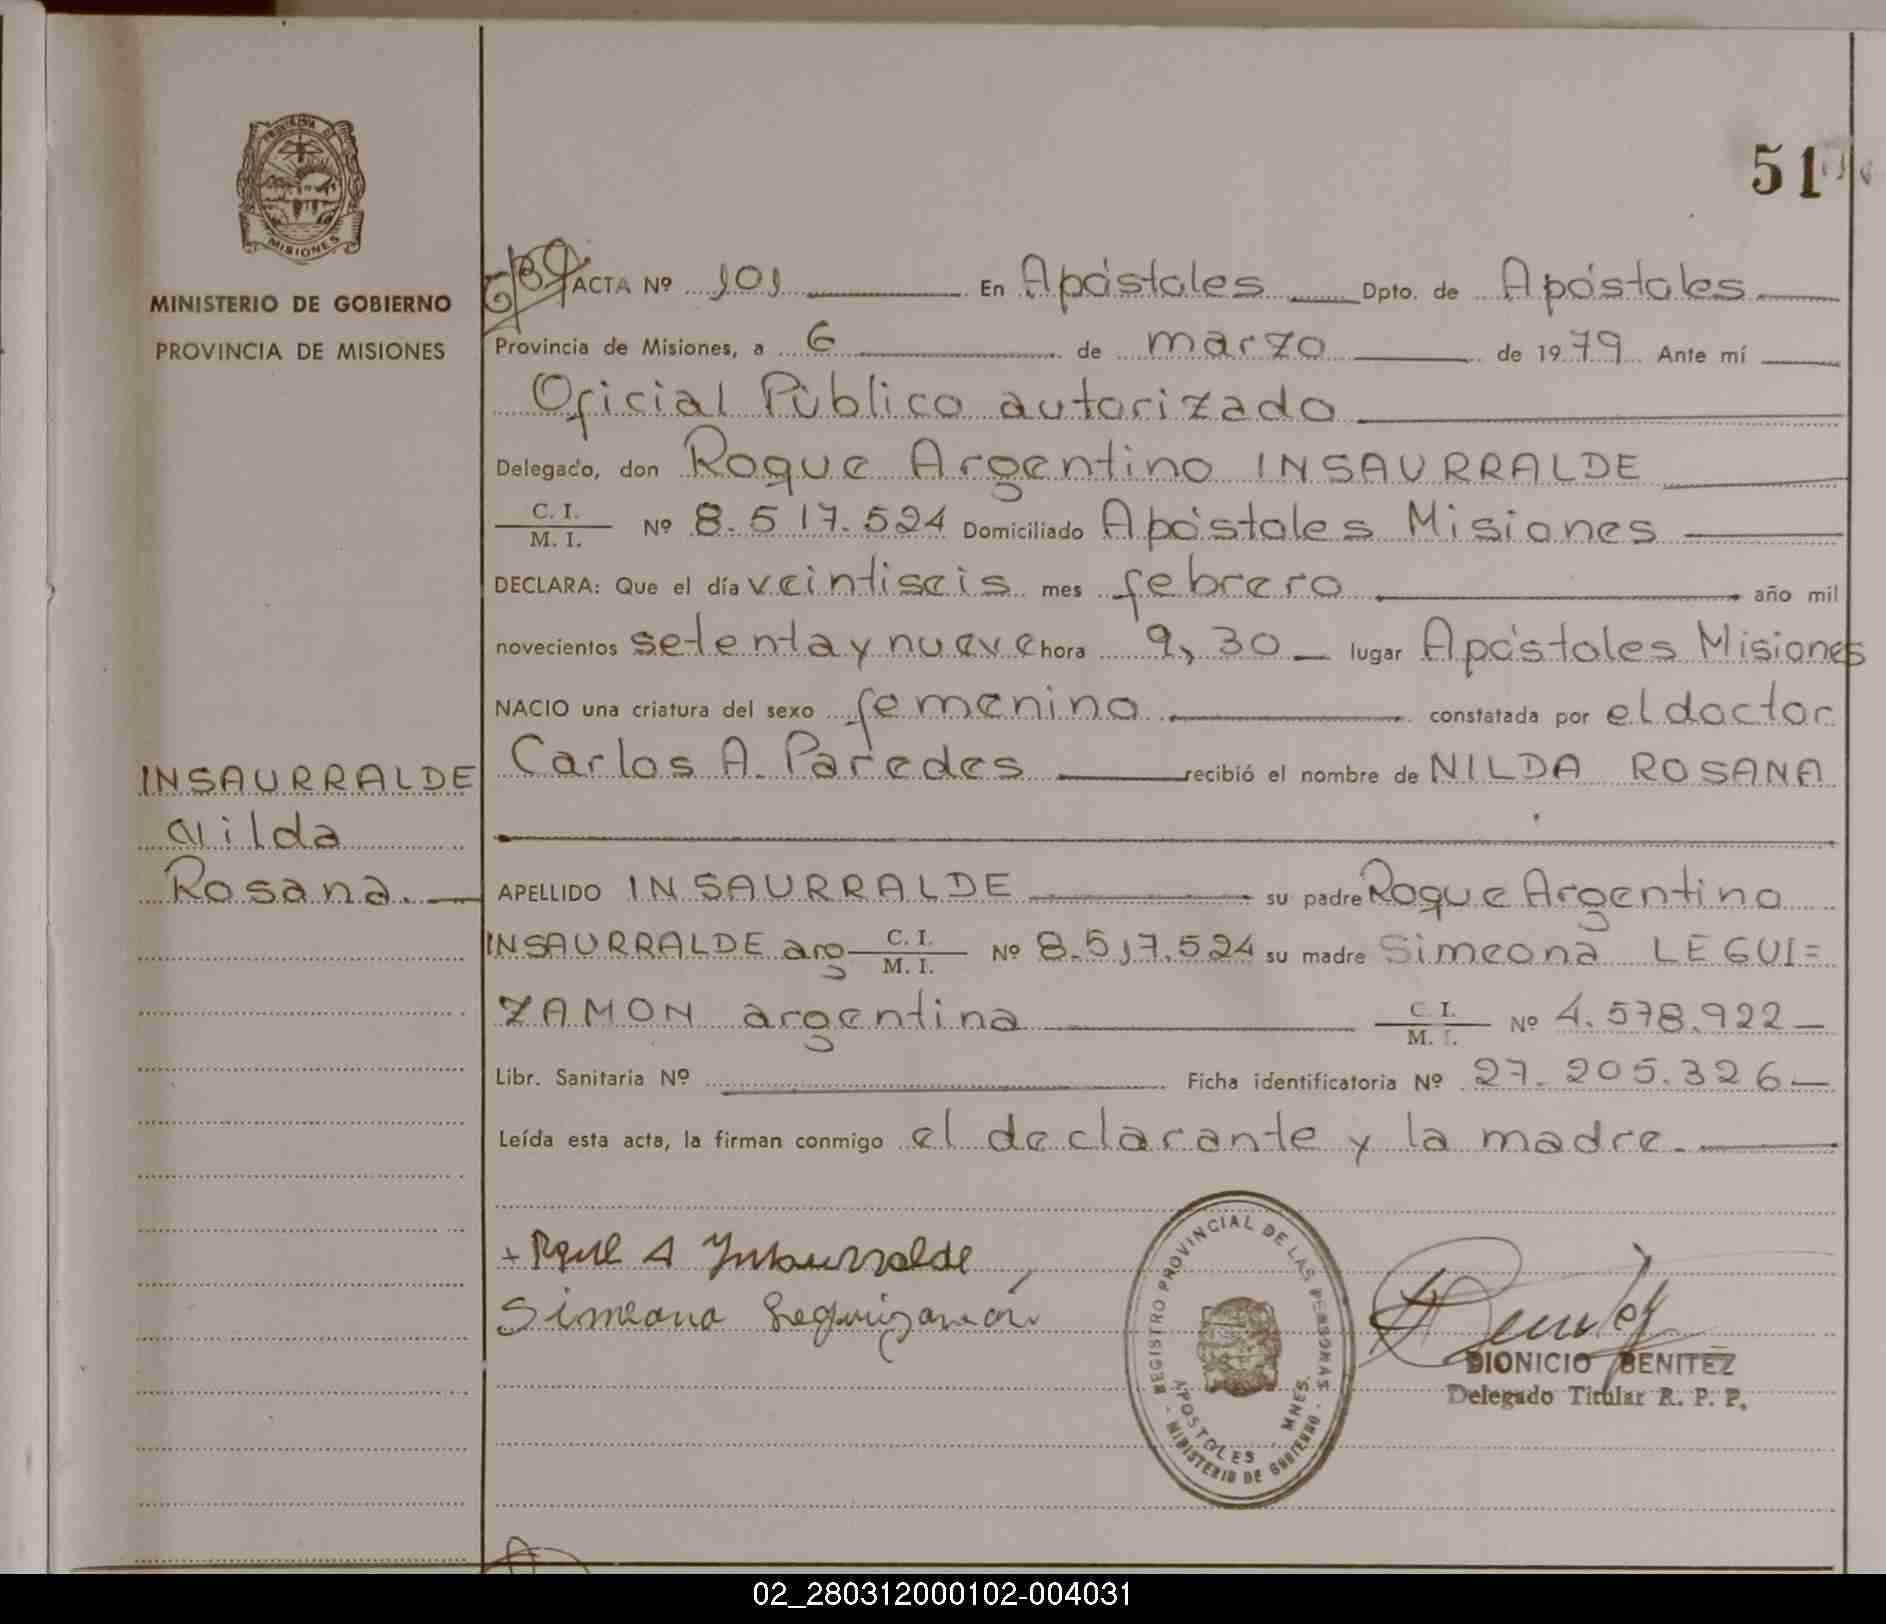 51
PROVINCIA D
MISIONES
MINISTERIO DE GOBIERNO
PROVINCIA DE MISIONES
INSAURRALDE
Nilda
Rosana.
ACTA Nº 101 En Apóstoles Dpto. de Apóstoles
Provincia de Misiones, a 6 de marzo de 1979 Ante mí
Oficial Público autorizado
Delegado, don Roque Argentino INSAURRALDE
C. I.
M. I. Nº 8.517.524 Domiciliado Apóstoles Misiones
DECLARA: Que el día veintiseis mes febrero año mil
novecientos setenta y nueve hora 9,30 lugar Apóstoles Misiones
NACIO una criatura del sexo femenino constatada por el doctor
Carlos A. Paredes recibió el nombre de NILDA ROSANA
APELLIDO INSAURRALDE su padre Roque Argentino
INSAURRALDE arg C. I. M. I. Nº 8.517.524 su madre Simeona LEGUI=
ZAMON argentina C. I. M. I. Nº 4.578.922
Libr. Sanitaria Nº Ficha identificatoria Nº 27.205.326
Leída esta acta, la firman conmigo el declarante y la madre.
+ Roque A Insaurralde
Simeona Leguizamón
REGISTRO PROVINCIAL DE LAS PERSONAS
APOSTOLES - MNES.
- MINISTERIO DE GOBIERNO -
DIONICIO BENITEZ
Delegado Titular R. P. P.
02_280312000102-004031